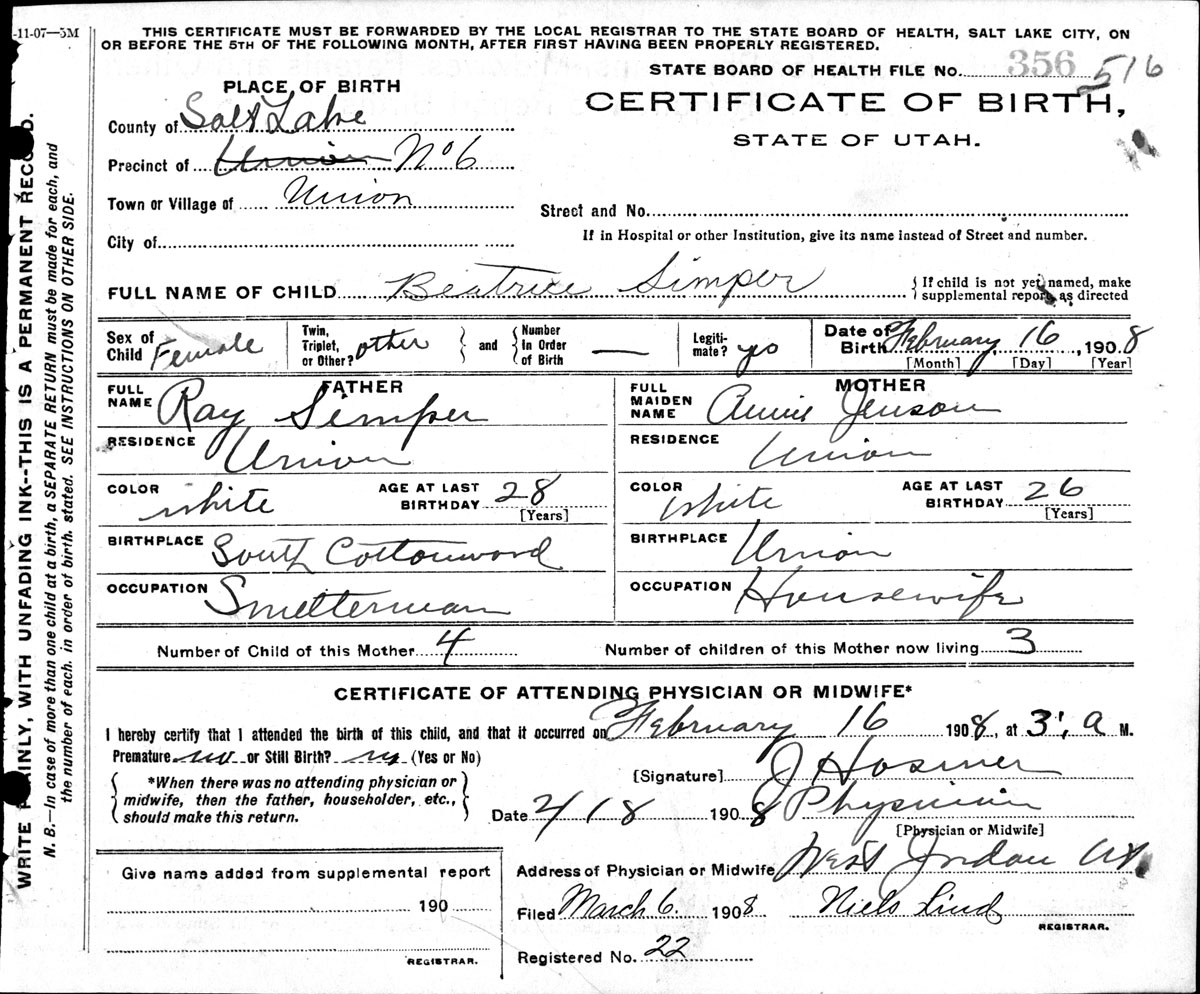 -11-07—5M
THIS CERTIFICATE MUST BE FORWARDED BY THE LOCAL REGISTRAR TO THE STATE BOARD OF HEALTH, SALT LAKE CITY, ON
OR BEFORE THE 5TH OF THE FOLLOWING MONTH, AFTER FIRST HAVING BEEN PROPERLY REGISTERED.
STATE BOARD OF HEALTH FILE No. 356 516
CERTIFICATE OF BIRTH,
STATE OF UTAH.
PLACE OF BIRTH
County of Salt Lake
Precinct of Union No 6
Town or Village of Union
City of
Street and No.
If in Hospital or other Institution, give its name instead of Street and number.
FULL NAME OF CHILD Beatrice Simper
If child is not yet named, make
supplemental report as directed
Sex of Child Female
Twin, Triplet, or Other? other
and
Number In Order of Birth —
Legiti-mate? yes
Date of Birth February 16, 1908
[Month] [Day] [Year]
FATHER
FULL NAME Ray Simper
RESIDENCE Union
COLOR white AGE AT LAST BIRTHDAY 28
[Years]
BIRTHPLACE South Cottonwood
OCCUPATION Smelterman
MOTHER
FULL MAIDEN NAME Annie Jenson
RESIDENCE Union
COLOR white AGE AT LAST BIRTHDAY 26
[Years]
BIRTHPLACE Union
OCCUPATION Housewife
Number of Child of this Mother 4 Number of children of this Mother now living 3
CERTIFICATE OF ATTENDING PHYSICIAN OR MIDWIFE*
I hereby certify that I attended the birth of this child, and that it occurred on February 16 1908, at 3; a M.
Premature no or Still Birth? no (Yes or No)
*When there was no attending physician or
midwife, then the father, householder, etc.,
should make this return.
[Signature] J Hosmer
Date 2/18 1908 Physician
[Physician or Midwife]
Address of Physician or Midwife West Jordan Ut
Give name added from supplemental report
190
REGISTRAR.
Filed March 6. 1908 Niels Lind
REGISTRAR.
Registered No. 22
WRITE PLAINLY, WITH UNFADING INK--THIS IS A PERMANENT RECORD.
N. B.—In case of more than one child at a birth, a SEPARATE RETURN must be made for each, and
the number of each, in order of birth, stated. SEE INSTRUCTIONS ON OTHER SIDE.